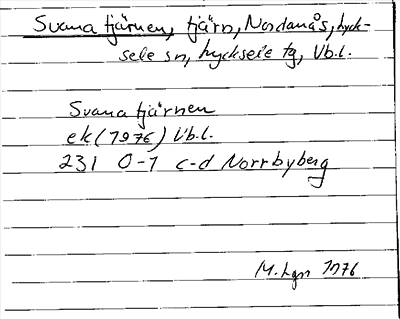 Svanatjärnen, tjärn, Nordanås, Lyck-
sele sn, Lycksele tg, Vb.l.
Svanatjärnen
ek (1976) Vb.l.
231 0-1 c-d Norrbyberg
M. Lgn 1976